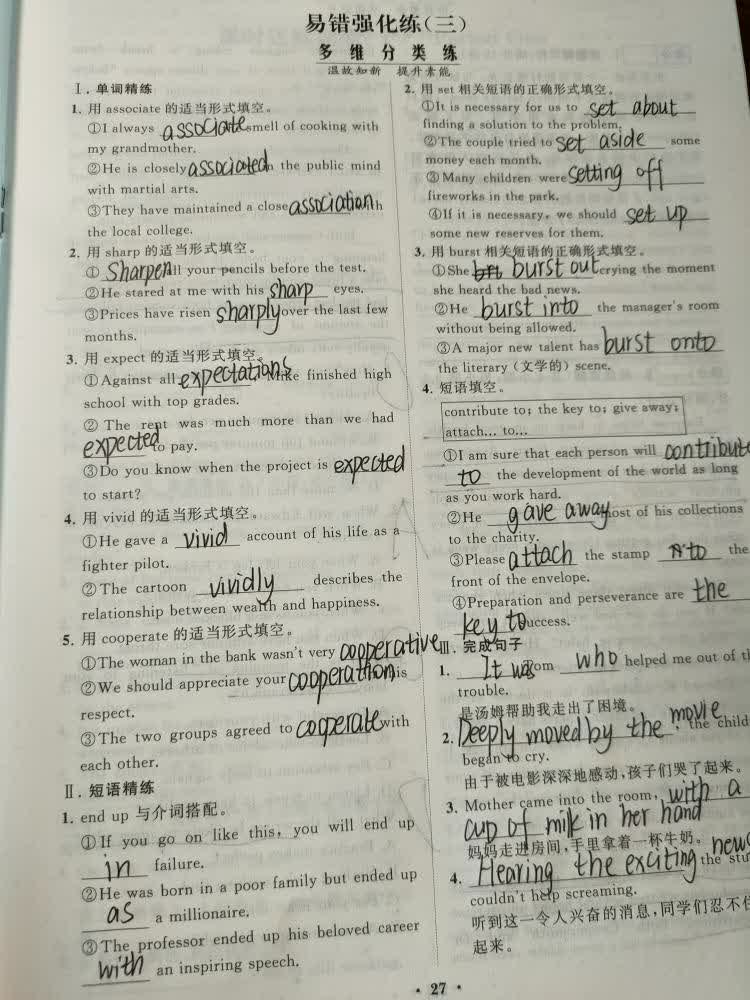 易错强化练(三)
多维分类练
温故知新 提升素能
Ⅰ.单词精练
1. 用 associate 的适当形式填空。
①I always associate smell of cooking with
my grandmother.
②He is closely associated in the public mind
with martial arts.
③They have maintained a close association h
the local college.
2. 用 sharp 的适当形式填空。
① Sharpen all your pencils before the test.
②He stared at me with his sharp eyes.
③Prices have risen sharply over the last few
months.
3. 用 expect 的适当形式填空。
①Against all expectations Mike finished high
school with top grades.
② The rent was much more than we had
expected to pay.
③Do you know when the project is expected
to start?
4. 用 vivid 的适当形式填空。
①He gave a vivid account of his life as a
fighter pilot.
②The cartoon vividly describes the
relationship between wealth and happiness.
5. 用 cooperate 的适当形式填空。
①The woman in the bank wasn't very cooperative
②We should appreciate your cooperation is
respect.
③The two groups agreed to cooperate with
each other.
Ⅱ.短语精练
1. end up 与介词搭配。
①If you go on like this, you will end up
in failure.
②He was born in a poor family but ended up
as a millionaire.
③The professor ended up his beloved career
with an inspiring speech.
2. 用 set 相关短语的正确形式填空。
①It is necessary for us to set about
finding a solution to the problem.
②The couple tried to set aside some
money each month.
③Many children were setting off
fireworks in the park.
④If it is necessary, we should set up
some new reserves for them.
3. 用 burst 相关短语的正确形式填空。
①She burst out crying the moment
she heard the bad news.
②He burst into the manager's room
without being allowed.
③A major new talent has burst onto
the literary (文学的) scene.
4. 短语填空。
contribute to; the key to; give away;
attach... to...
①I am sure that each person will contribute
to the development of the world as long
as you work hard.
②He gave away most of his collections
to the charity.
③Please attach the stamp to the
front of the envelope.
④Preparation and perseverance are the
key to success.
Ⅲ.完成句子
1. It was Tom who helped me out of th
trouble.
是汤姆帮助我走出了困境。
2. Deeply moved by the movie, the child
began to cry.
由于被电影深深地感动,孩子们哭了起来。
3. Mother came into the room, with a
cup of milk in her hand
妈妈走进房间,手里拿着一杯牛奶。
4. Hearing the exciting news the stu
couldn't help screaming.
听到这一令人兴奋的消息,同学们忍不住
起来。
· 27 ·